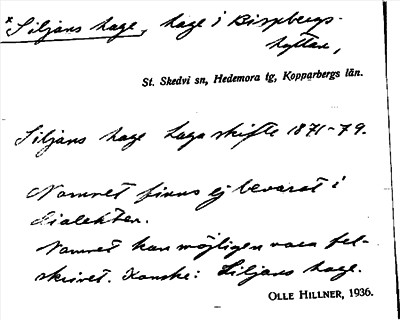 *Siljans hage, hage i Bispbergs-
hyttan,
St. Skedvi sn, Hedemora tg, Kopparbergs län.
Siljans hage Laga skifte 1871-79.
Namnet finns ej bevarat i
dialekten.
Namnet kan möjligen vara fel-
skrivet. Kanske: Liljans hage.
OLLE HILLNER, 1936.